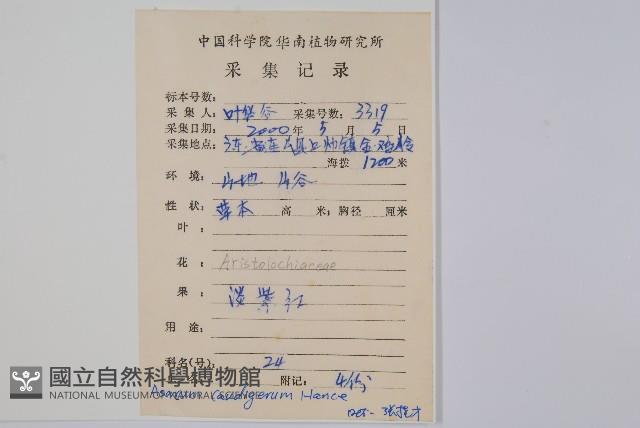 中国科学院华南植物研究所
采集记录
标本号数：
采集人：叶华谷 采集号数：3319
采集日期：2000年5月5日
采集地点：广东省连山县上帅镇金鸡岭
海拨 1200 米
环境：山地 山谷
性状：草本 高 米；胸径 厘米
叶：
花：Aristolochiaceae
果：淡紫红
用途：
科名(号)：24
附记：4份
Asarum caudigerum Hance
Det. 张
國立自然科學博物館
NATIONAL MUSEUM OF NATURAL